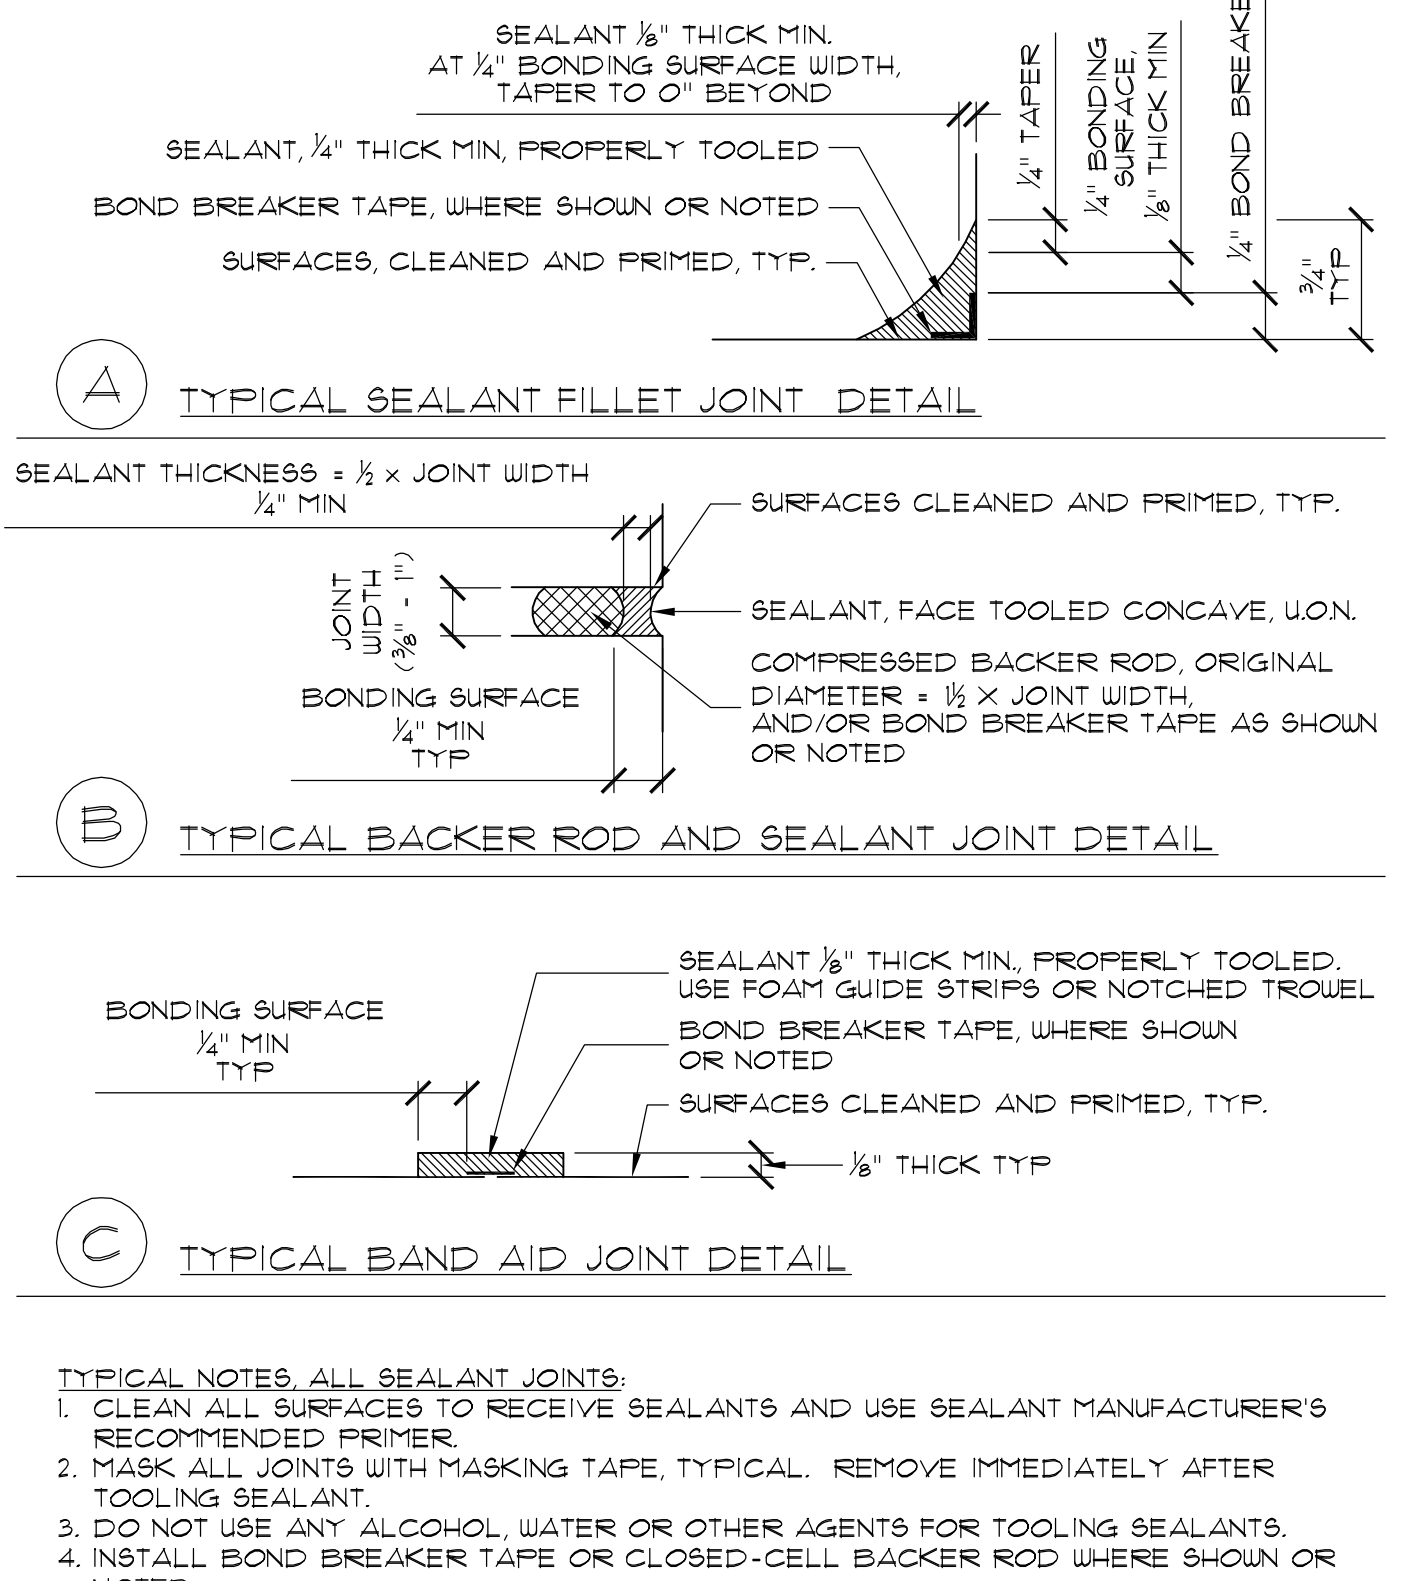 SEALANT ⅛" THICK MIN.
AT ¼" BONDING SURFACE WIDTH,
TAPER TO 0" BEYOND
SEALANT, ¼" THICK MIN, PROPERLY TOOLED
BOND BREAKER TAPE, WHERE SHOWN OR NOTED
SURFACES, CLEANED AND PRIMED, TYP.
¼" TAPER
¼" BONDING
SURFACE,
⅛" THICK MIN
¼" BOND BREAKE
¾"
TYP
A
TYPICAL SEALANT FILLET JOINT DETAIL
SEALANT THICKNESS = ½ x JOINT WIDTH
¼" MIN
SURFACES CLEANED AND PRIMED, TYP.
JOINT
WIDTH
(⅜" - 1")
SEALANT, FACE TOOLED CONCAVE, U.O.N.
COMPRESSED BACKER ROD, ORIGINAL
DIAMETER = 1½ X JOINT WIDTH,
AND/OR BOND BREAKER TAPE AS SHOWN
OR NOTED
BONDING SURFACE
¼" MIN
TYP
B
TYPICAL BACKER ROD AND SEALANT JOINT DETAIL
SEALANT ⅛" THICK MIN., PROPERLY TOOLED.
USE FOAM GUIDE STRIPS OR NOTCHED TROWEL
BONDING SURFACE
¼" MIN
TYP
BOND BREAKER TAPE, WHERE SHOWN
OR NOTED
SURFACES CLEANED AND PRIMED, TYP.
⅛" THICK TYP
C
TYPICAL BAND AID JOINT DETAIL
TYPICAL NOTES, ALL SEALANT JOINTS:
1. CLEAN ALL SURFACES TO RECEIVE SEALANTS AND USE SEALANT MANUFACTURER'S
RECOMMENDED PRIMER.
2. MASK ALL JOINTS WITH MASKING TAPE, TYPICAL. REMOVE IMMEDIATELY AFTER
TOOLING SEALANT.
3. DO NOT USE ANY ALCOHOL, WATER OR OTHER AGENTS FOR TOOLING SEALANTS.
4. INSTALL BOND BREAKER TAPE OR CLOSED-CELL BACKER ROD WHERE SHOWN OR